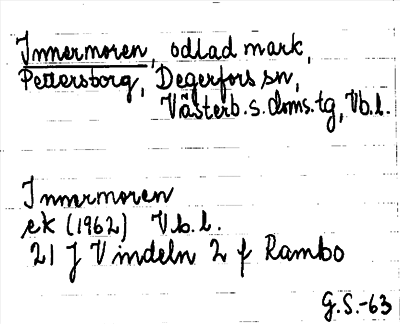 Innermoren, odlad mark,
Pettersborg, Degerfors sn,
Västerb. s. doms. tg, Vb. l.
Innermoren
ek (1962) V.b. l.
21 J Vindeln 2 f Rambo
G.S.-63